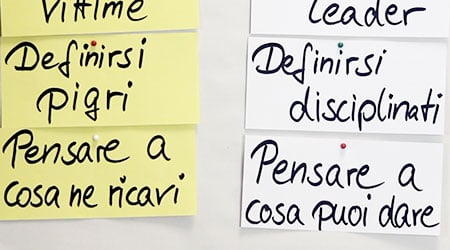 Vittime
Definirsi
pigri
Pensare a
cosa ne ricavi
leader
Definirsi
disciplinati
Pensare a
cosa puoi dare